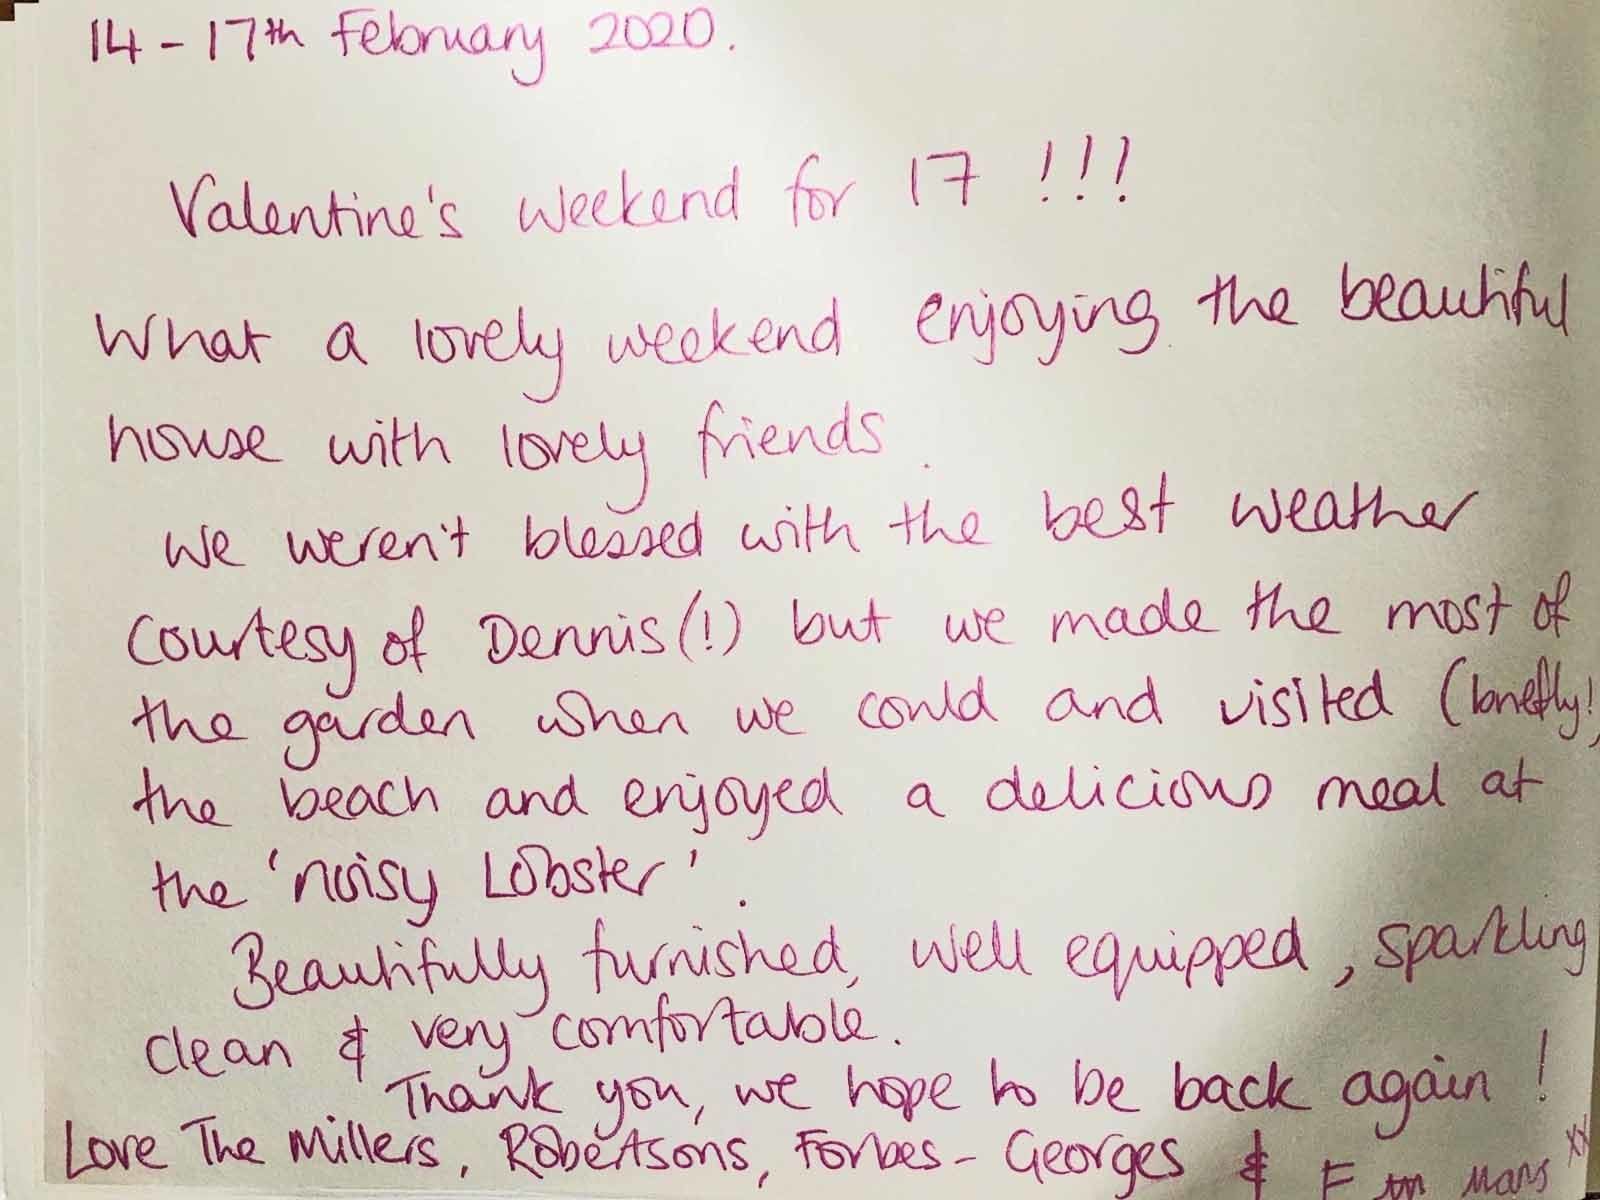 14 - 17th February 2020.
Valentine's weekend for 17 !!!
What a lovely weekend enjoying the beautiful
house with lovely friends.
We weren't blessed with the best weather
courtesy of Dennis (!) but we made the most of
the garden when we could and visited (briefly!)
the beach and enjoyed a delicious meal at
the 'noisy Lobster'.
Beautifully furnished, well equipped, sparkling
clean & very comfortable.
Thank you, we hope to be back again!
Love The Millers, Robertsons, Forbes-Georges & xx